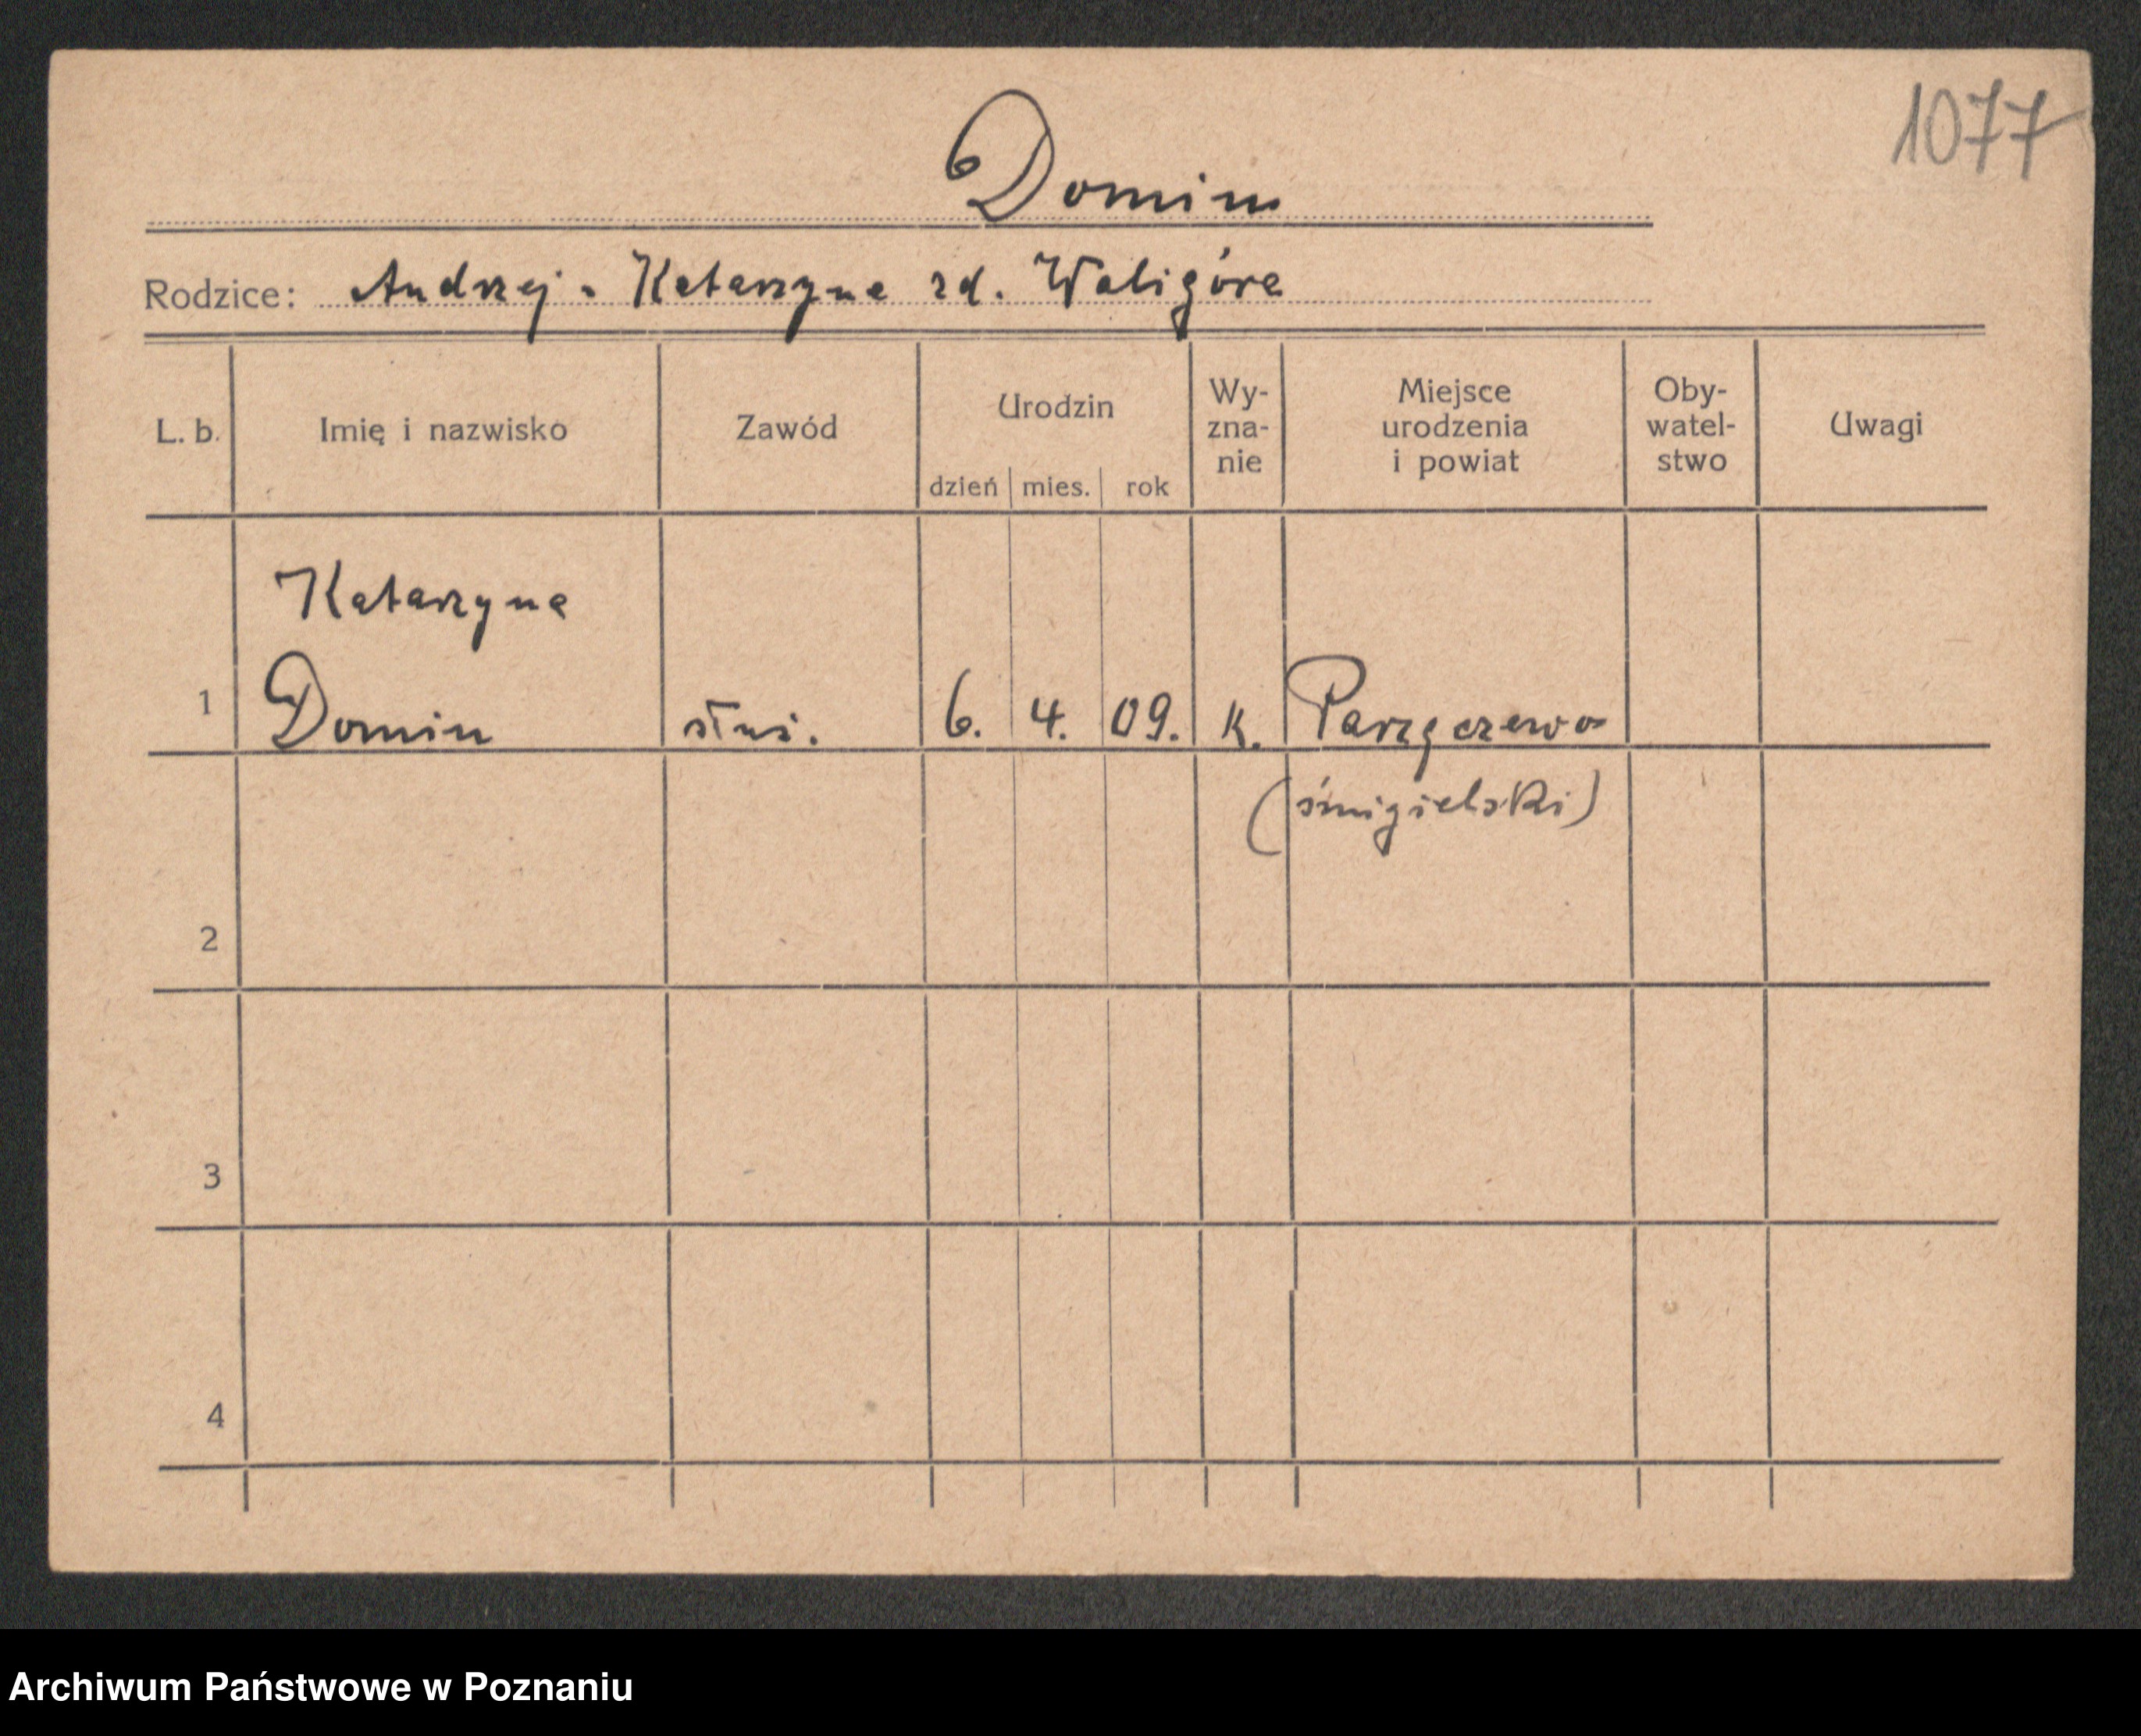 1077
Domin
Rodzice: Andrzej - Katarzyna zd. Waligóra
L. b. Imię i nazwisko Zawód Urodzin dzień mies. rok Wy-zna-nie Miejsce urodzenia i powiat Oby-watel-stwo Uwagi
Katarzyna
1 Domin służ. 6. 4. 09. k. Parzęczewo
(śmigielski)
2
3
4
Archiwum Państwowe w Poznaniu